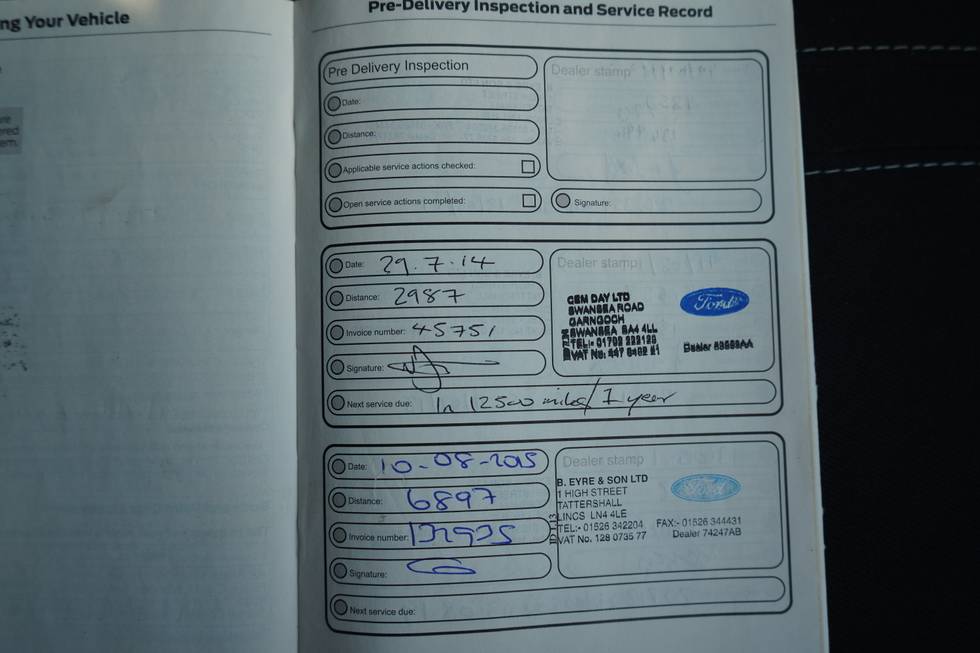 ng Your Vehicle
ered
em.
Pre-Delivery Inspection and Service Record
Pre Delivery Inspection
Date:
Distance:
Applicable service actions checked:
Open service actions completed:
Dealer stamp
Signature:
Date: 29.7.14
Distance: 2987
Invoice number: 45751
Signature:
Next service due: In 12500 miles/1 year
Dealer stamp
GEM DAY LTD
SWANSEA ROAD
GARNGOCH
SWANSEA SA4 4LL
TEL:- 01792 222123
VAT No:
Ford
Dealer
Date: 10-08-2015
Distance: 6897
Invoice number:
Signature:
Next service due:
Dealer stamp
B. EYRE & SON LTD
1 HIGH STREET
TATTERSHALL
LINCS LN4 4LE
TEL:- 01526 342204 FAX:- 01526 344431
VAT No. 128 0735 77 Dealer 74247AB
Ford